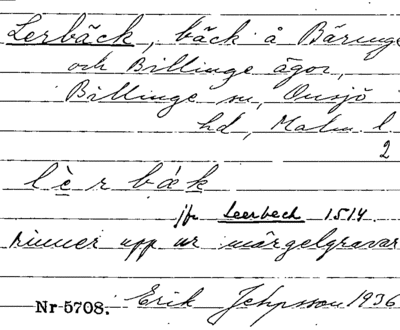 Lerbäck, bäck å Bäringe
och Billinge ägor,
Billinge sn, Onsjö
hd, Malm. l.
2
lè r bá k
jfr Leerbech 1514.
rinner upp ur märgelgravar
Nr 5708. Erik Jeppsson 1936